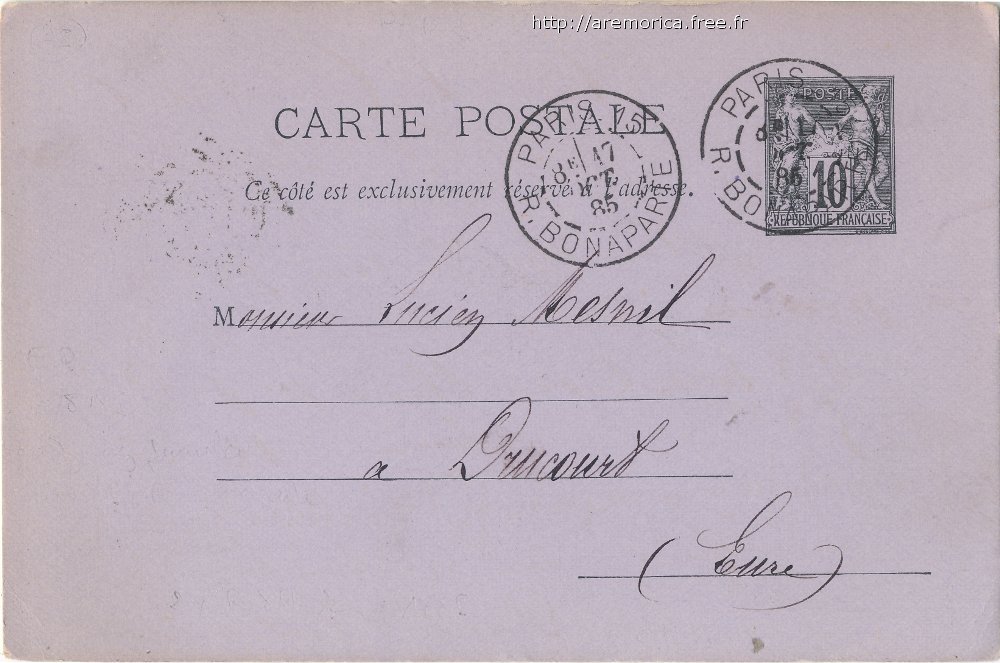 http://aremorica.free.fr
POSTE
10
REPUBLIQUE FRANÇAISE
PARIS
R. BONAPARTE
85
CARTE POSTALE
PARIS 15
8E 17
OCT.
85
R. BONAPARTE
Ce côté est exclusivement réservé à l'adresse.
Monsieur Lucien Mesnil
a Drucourt
(Eure)